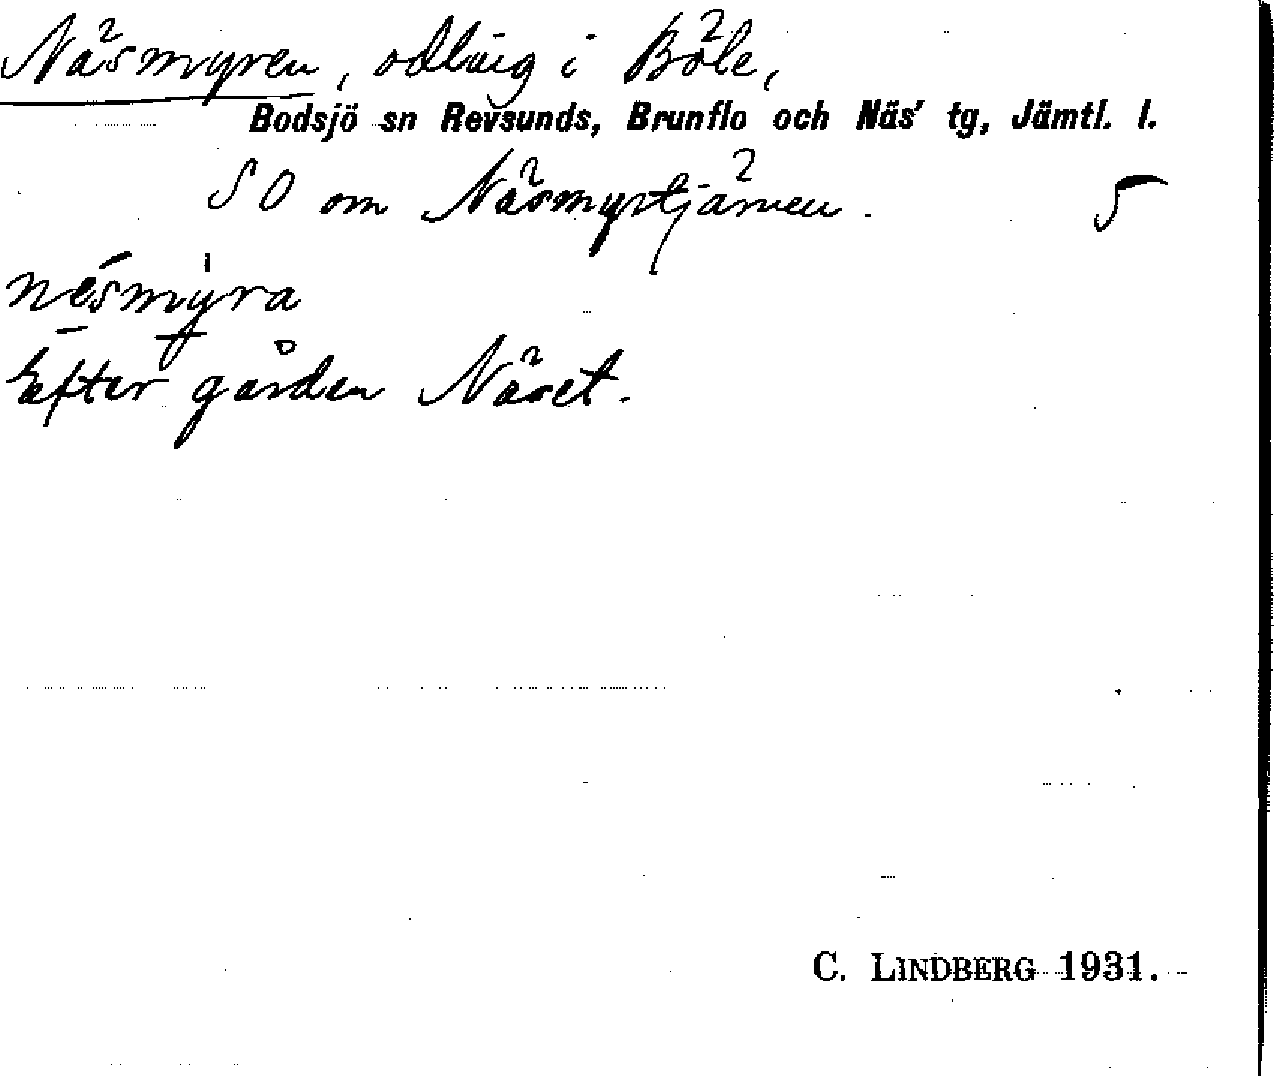 Näsmyren, odling i Böle,
Bodsjö sn Revsunds, Brunflo och Näs' tg, Jämtl. l.
SO om Näsmyrtjärnen. 5
nésmỳra
Efter gården Näset.
C. LINDBERG 1931.